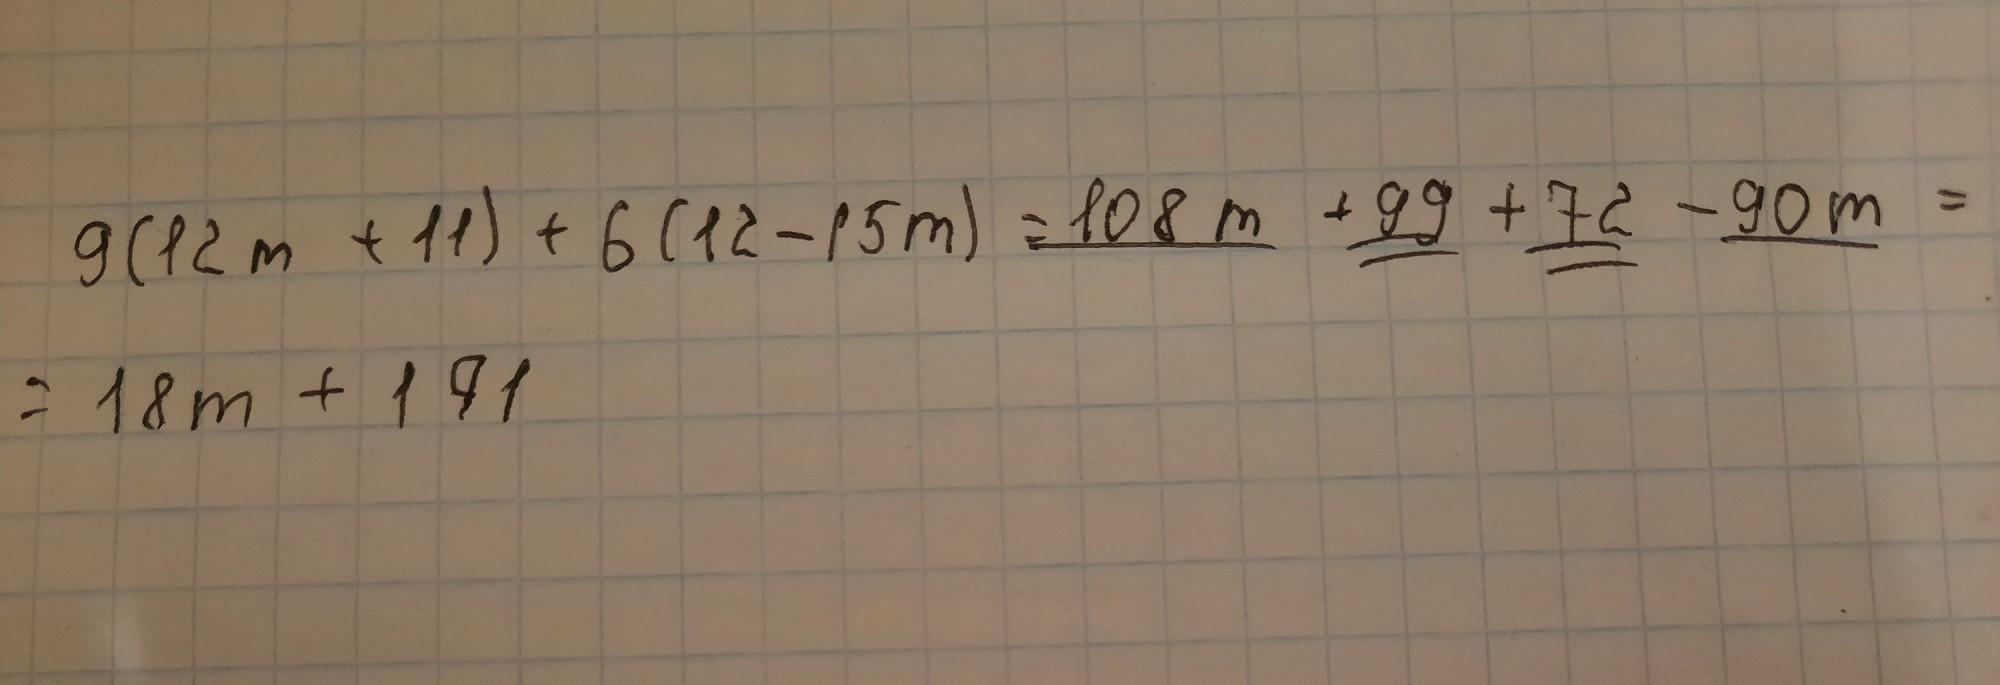 9(12m + 11) + 6(12 - 15m) = 108m + 99 + 72 - 90m =
= 18m + 171